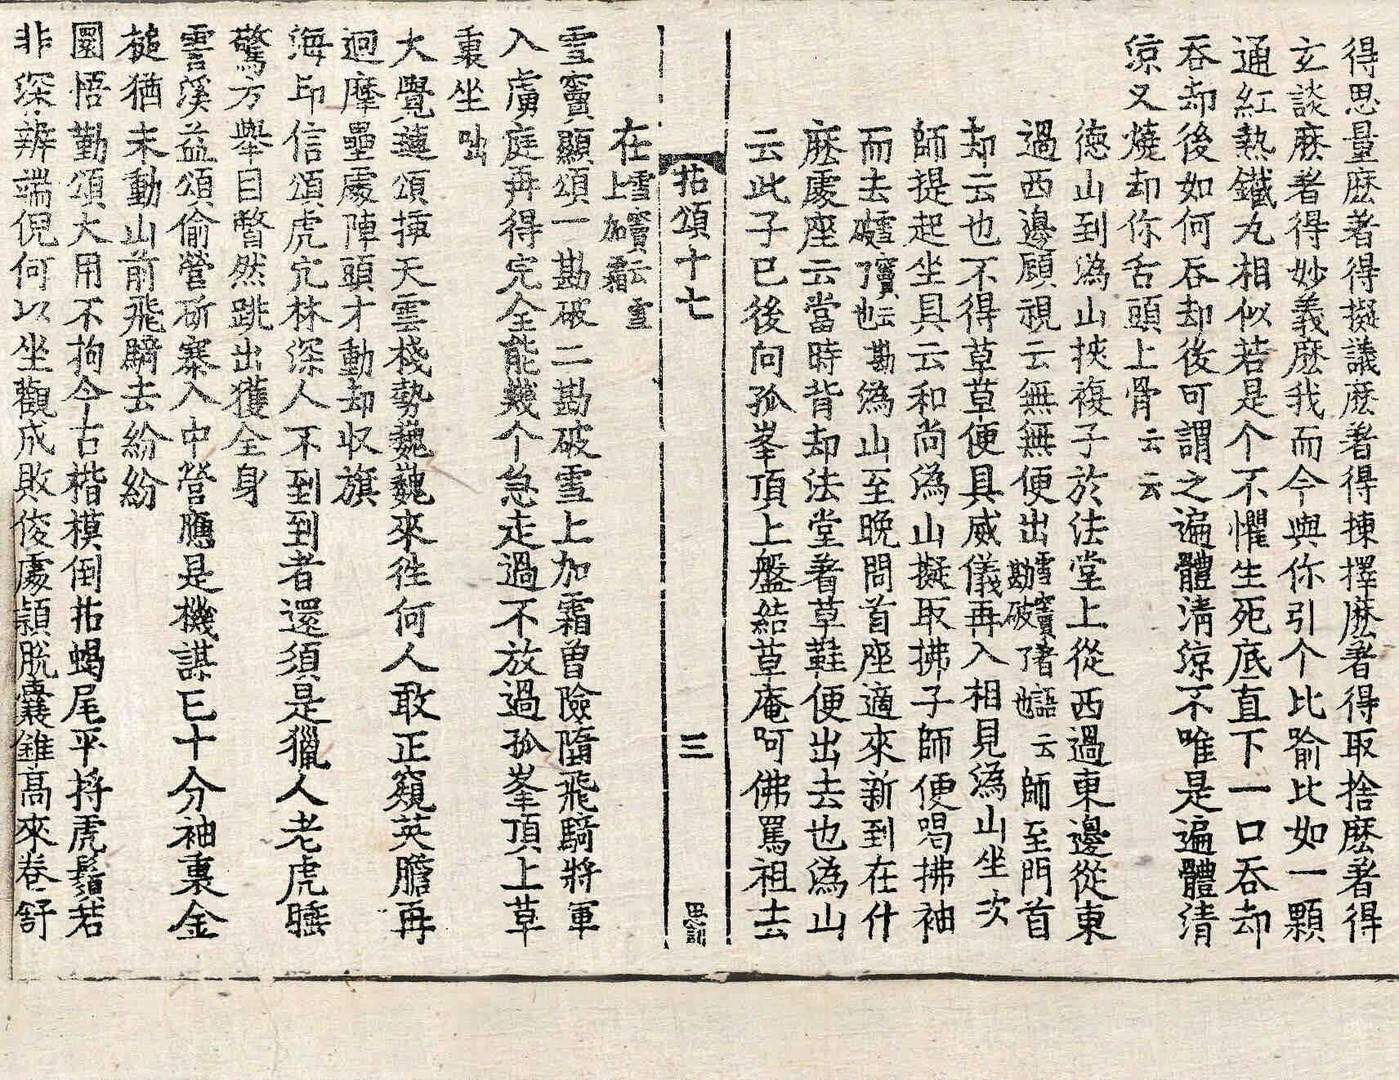 得思量麽著得擬議麽著得揀擇麽著得取捨麽著得
玄談麽著得妙義麽我而今與你引个比喻比如一顆
通紅熱鐵丸相似若是个不懼生死底直下一口吞却
吞却後如何吞却後可謂之遍體清涼不唯是遍體清
涼又燒却你舌頭上骨云云
德山到潙山挾複子於法堂上從西過東邊從東
過西邊顧視云無無便出雪竇著語云勘破了也師至門首
却云也不得草草便具威儀再入相見潙山坐次
師提起坐具云和尚潙山擬取拂子師便喝拂袖
而去雪竇云勘破了也潙山至晚問首座適來新到在什
麽處座云當時背却法堂著草鞋便出去也潙山
云此子已後向孤峯頂上盤結草庵呵佛罵祖去
拈頌十七 三 思訓
在雪竇云雪上加霜
雪竇顯頌一勘破二勘破雪上加霜曽險墮飛騎將軍
入虜庭再得完全能幾个急走過不放過孤峯頂上草
裏坐咄
大覺璉頌揷天雲棧勢巍巍來徃何人敢正窺英膽再
迴摩壘處陣頭才動却収旗
海印信頌虎穴林深人不到到者還須是獵人老虎睡
驚方舉目瞥然跳出獲全身
雲溪益頌偷營斫寨入中營應是機謀已十分袖裏金
槌猶未動山前飛騎去紛紛
圜悟勤頌大用不拘今古楷模倒拈蝎尾平捋虎鬚若
非深辨端倪何以坐觀成敗俊處頴脫囊錐高來卷舒